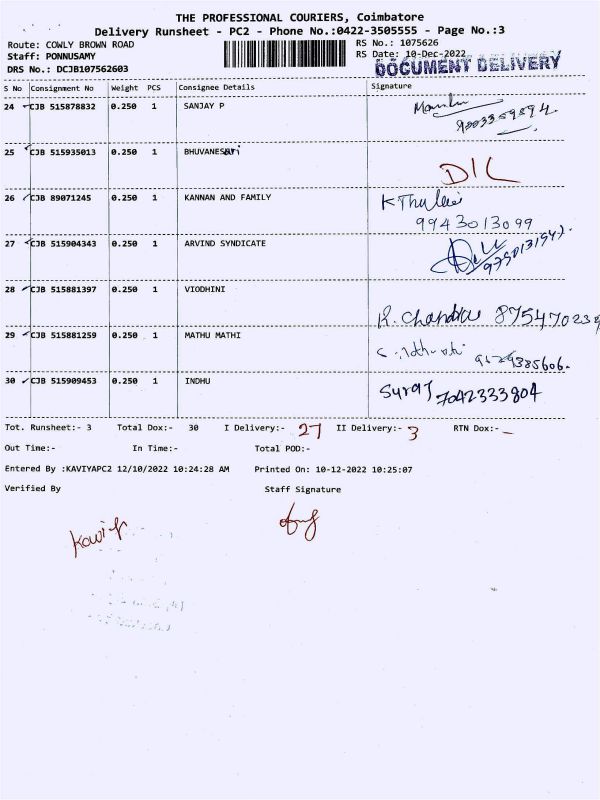 THE PROFESSIONAL COURIERS, Coimbatore
Delivery Runsheet - PC2 - Phone No.:0422-3505555 - Page No.:3
Route: COWLY BROWN ROAD RS No.: 1075626
Staff: PONNUSAMY RS Date: 10-Dec-2022
DRS No.: DCJB107562603 DOCUMENT DELIVERY
S No Consignment No Weight PCS Consignee Details Signature
24 CJB 515878832 0.250 1 SANJAY P
25 CJB 515935013 0.250 1 BHUVANESARI
D/L
26 CJB 89071245 0.250 1 KANNAN AND FAMILY K Thulasi
9943013099
27 CJB 515904343 0.250 1 ARVIND SYNDICATE
28 CJB 515881397 0.250 1 VIODHINI
R. Chandra
29 CJB 515881259 0.250 1 MATHU MATHI
30 CJB 515909453 0.250 1 INDHU Suraj 7042333804
Tot. Runsheet:- 3 Total Dox:- 30 I Delivery:- 27 II Delivery:- 3 RTN Dox:- _
Out Time:- In Time:- Total POD:-
Entered By :KAVIYAPC2 12/10/2022 10:24:28 AM Printed On: 10-12-2022 10:25:07
Verified By Staff Signature